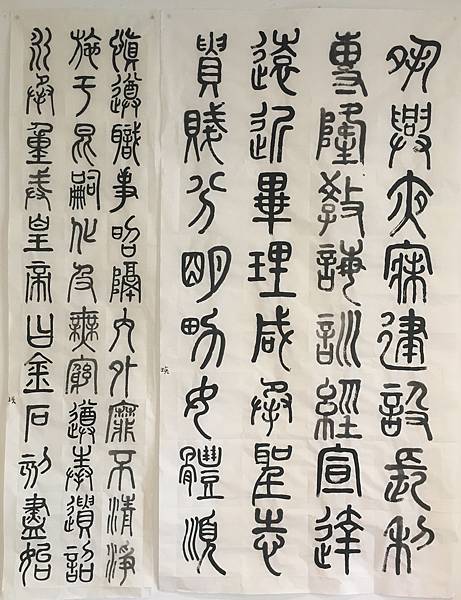 夙興夜寐建設長利
專隆教誨訓經宣達
遠近畢理咸承聖志
貴賤分明男女體順
慎遵職事昭隔內外靡不清淨
施于昆嗣化及無窮遵奉遺詔
永承重戒皇帝曰金石刻盡始